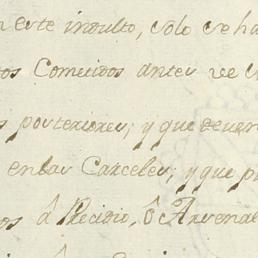 n este indulto, solo se ha
os Cometidos antes de
s posteriores; y que devera
en las Carceles; y que p
os â Precidio, ô Arsenal